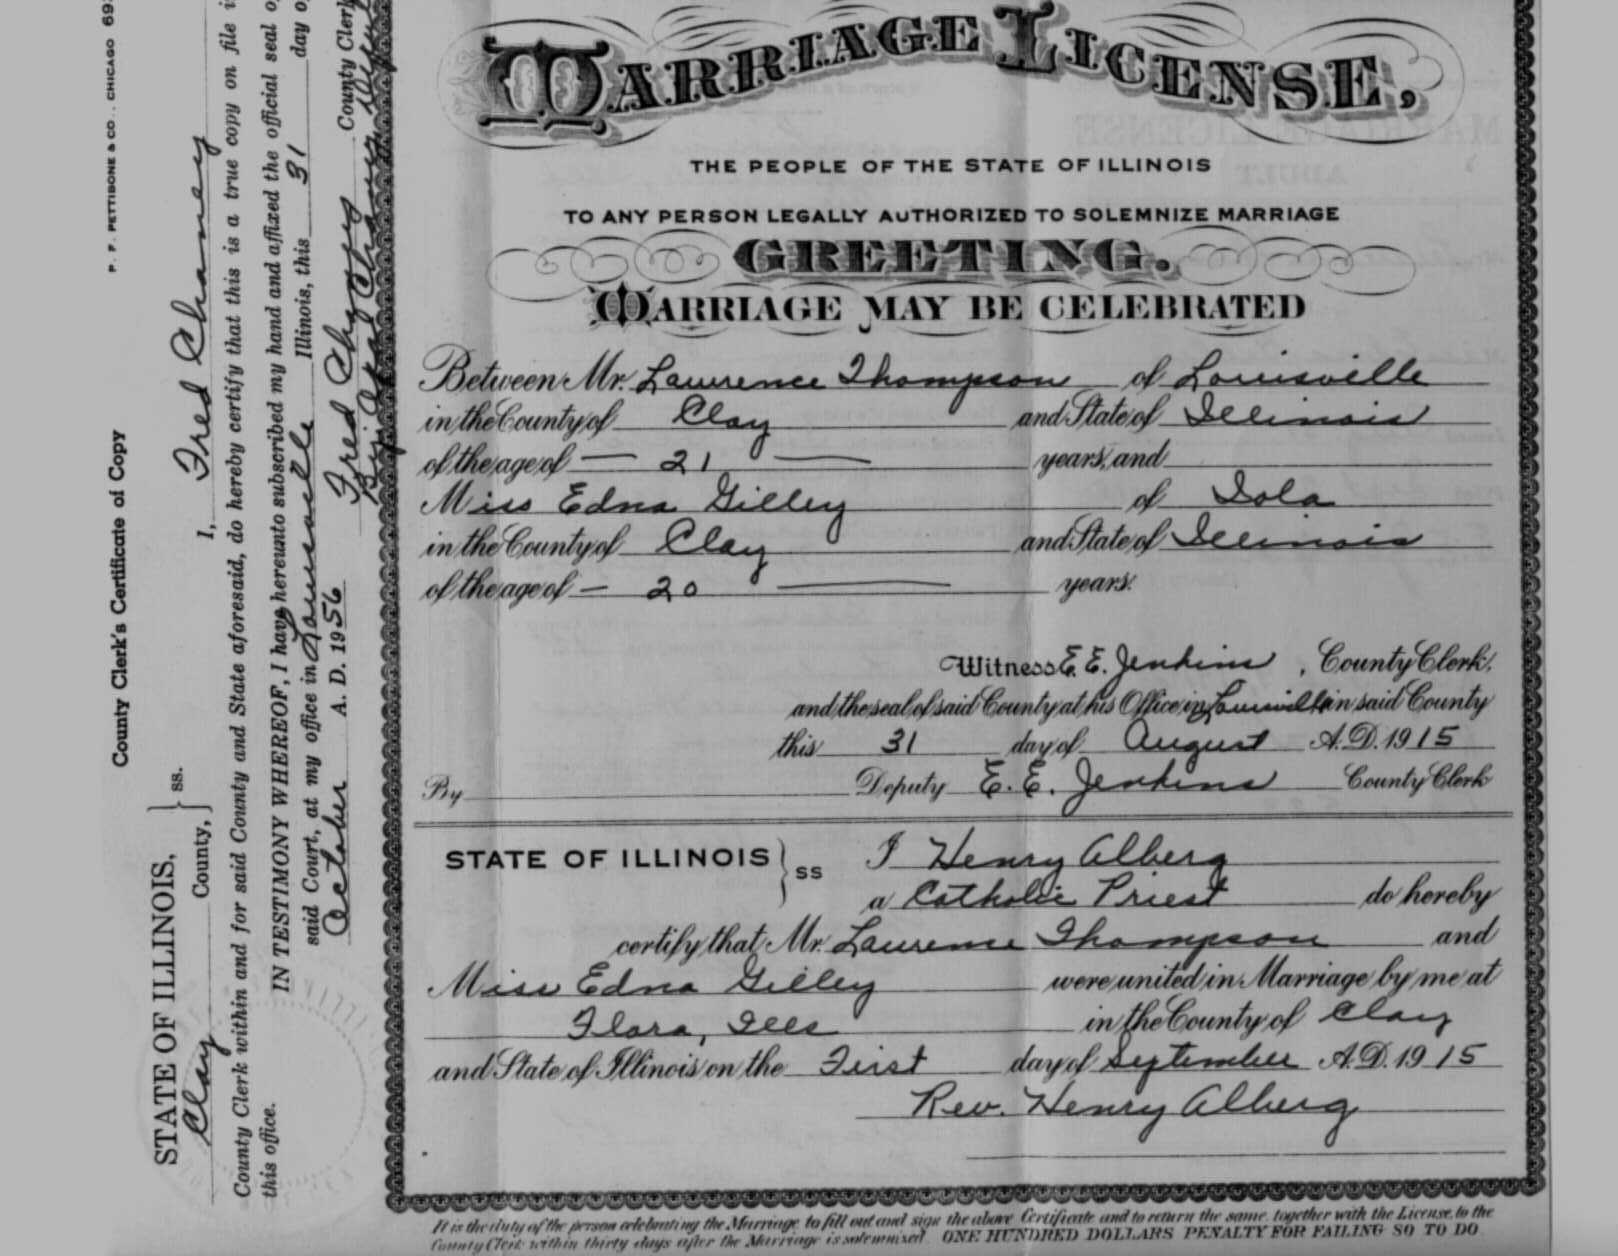 MARRIAGE LICENSE,
THE PEOPLE OF THE STATE OF ILLINOIS
TO ANY PERSON LEGALLY AUTHORIZED TO SOLEMNIZE MARRIAGE
GREETING.
MARRIAGE MAY BE CELEBRATED
Between Mr. Lawrence Thompson of Louisville
in the County of Clay and State of Illinois
of the age of — 21 — years, and
Miss Edna Gilley of Iola
in the County of Clay and State of Illinois
of the age of — 20 — years.
Witness E. E. Jenkins, County Clerk,
and the seal of said County at his Office in Louisville in said County
this 31 day of August A.D. 1915
By Deputy E. E. Jenkins County Clerk
STATE OF ILLINOIS } ss I Henry Alberg
a Catholic Priest do hereby
certify that Mr. Laurence Thompson and
Miss Edna Gilley were united in Marriage by me at
Flora, Ills in the County of Clay
and State of Illinois on the First day of September A.D. 1915
Rev. Henry Alberg
It is the duty of the person celebrating the Marriage, to fill out and sign the above Certificate and to return the same, together with the License, to the
County Clerk within thirty days after the Marriage is solemnized. ONE HUNDRED DOLLARS PENALTY FOR FAILING SO TO DO
P. F. PETTIBONE & CO., CHICAGO
County Clerk's Certificate of Copy
STATE OF ILLINOIS, } ss.
Clay County,
I, Fred Chaney
County Clerk within and for said County and State aforesaid, do hereby certify that this is a true copy on file
this office.
IN TESTIMONY WHEREOF, I have hereunto subscribed my hand and affixed the official seal
said Court, at my office in Louisville Illinois, this 31 day
October A. D. 1956
Fred Chaney County Clerk
By